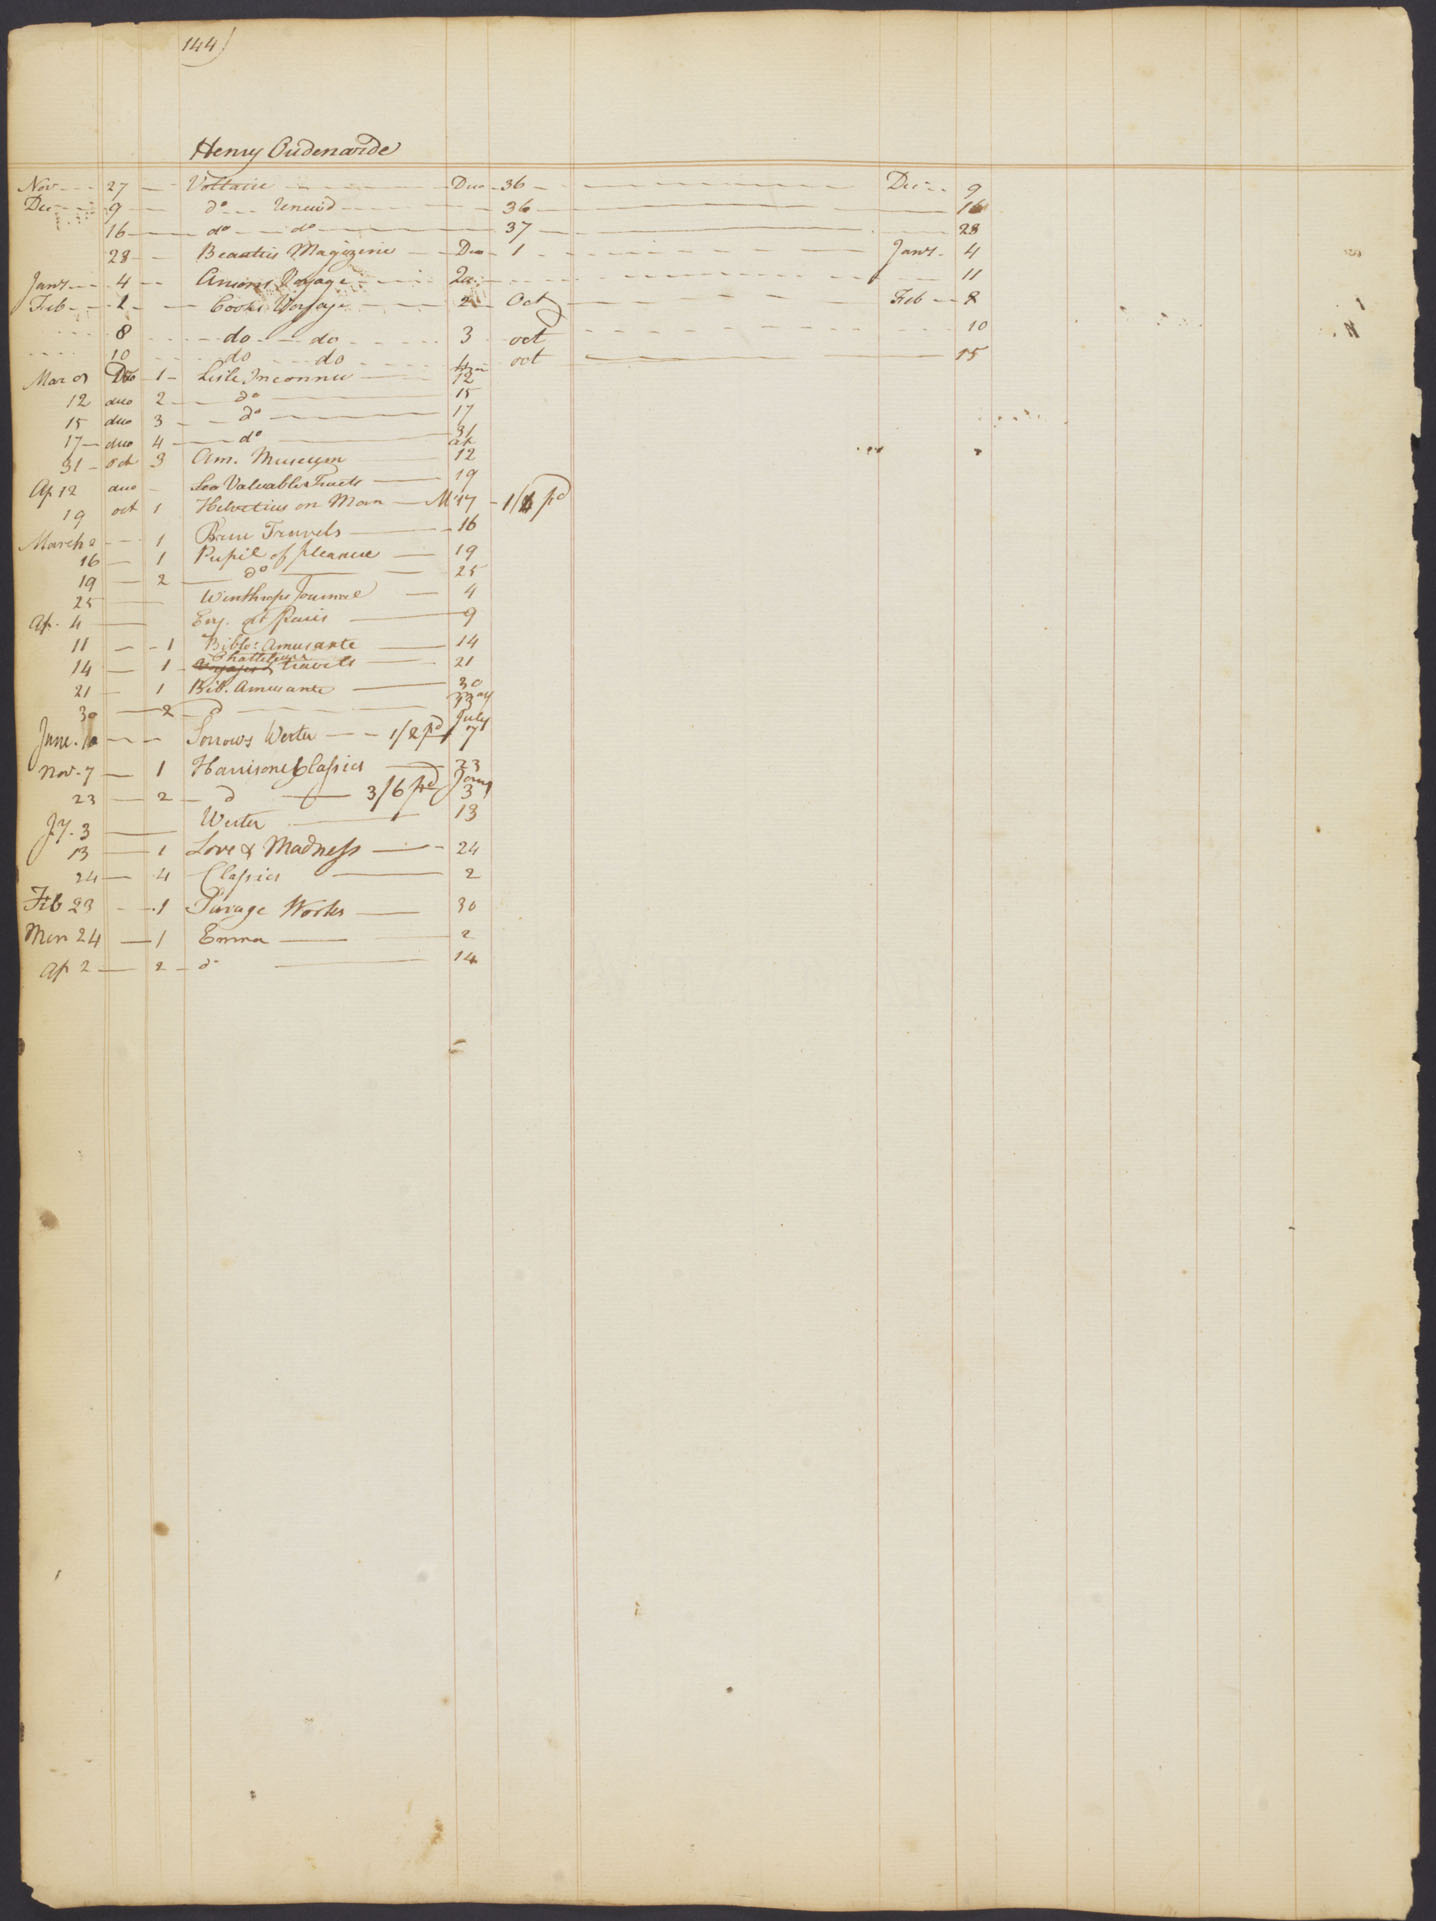 144)
Henry Oudenarde
Nov 27 Voltaire Duo 36 Dec 9
Dec 9 do Unewd 36 16
16 do do 37 28
28 Beauties Magizene Duo 1 Jany 4
Jany 4 Ansons Voyage 11
Feb 2 Cooks Voyage 2 Oct Feb 8
8 do do 3 oct 10
10 do do 4 oct 15
Mar 9 Duo 1 Lisle Inconnu 12
12 duo 2 do 15
15 duo 3 do 17
17 duo 4 do 31
31 oct 3 Am. Museum ap 12
Ap 12 duo Valuable Tracts 19
19 oct 1 Helvetius on Man 1/4 pd
March 2 1 Travels 16
16 1 Pupil of pleasure 19
19 2 do 25
25 Winthrops Journal 4
Ap. 4 Eng. at Paris 9
11 1 Biblo: Amusante 14
14 1 Chatteleux travels 21
21 1 Bib. Amusante 30
30 2 do May
June 10 Sorrows Werter 1/2 pd July 7
Nov 7 1 Harrisons Classics 23
23 2 d 3/6 pd Jany 3
Jy. 3 Werter 13
13 1 Love & Madness 24
24 4 Classics 2
Feb 23 1 Savage Works 30
Mar 24 1 Emma 2
Ap 2 2 do 14